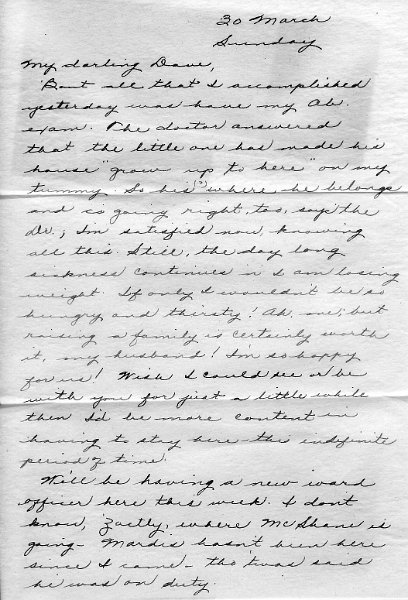 30 March
Sunday
My darling Dave,
But all that I accomplished
yesterday was have my Ab.
exam. The doctor answered
that the little one has made his
house "grow up to here" on my
tummy. So his (?) where he belongs
and is going right, too, says the
Dr.; I'm satisfied now, knowing
all this. Still, the day long
sickness continues n I am losing
weight. If only I wouldn't be so
hungry and thirsty! Ah, me; but
raising a family is certainly worth
it, my husband! I'm so happy
for us! Wish I could see or be
with you for just a little while
then I'd be more content in
having to stay here the indefinite
period of time.
We'll be having a new ward
officer here this week. I don't
know, 'zactly, where McShane is
going - Mardis hasn't been here
since I came - tho 'twas said
he was on duty.